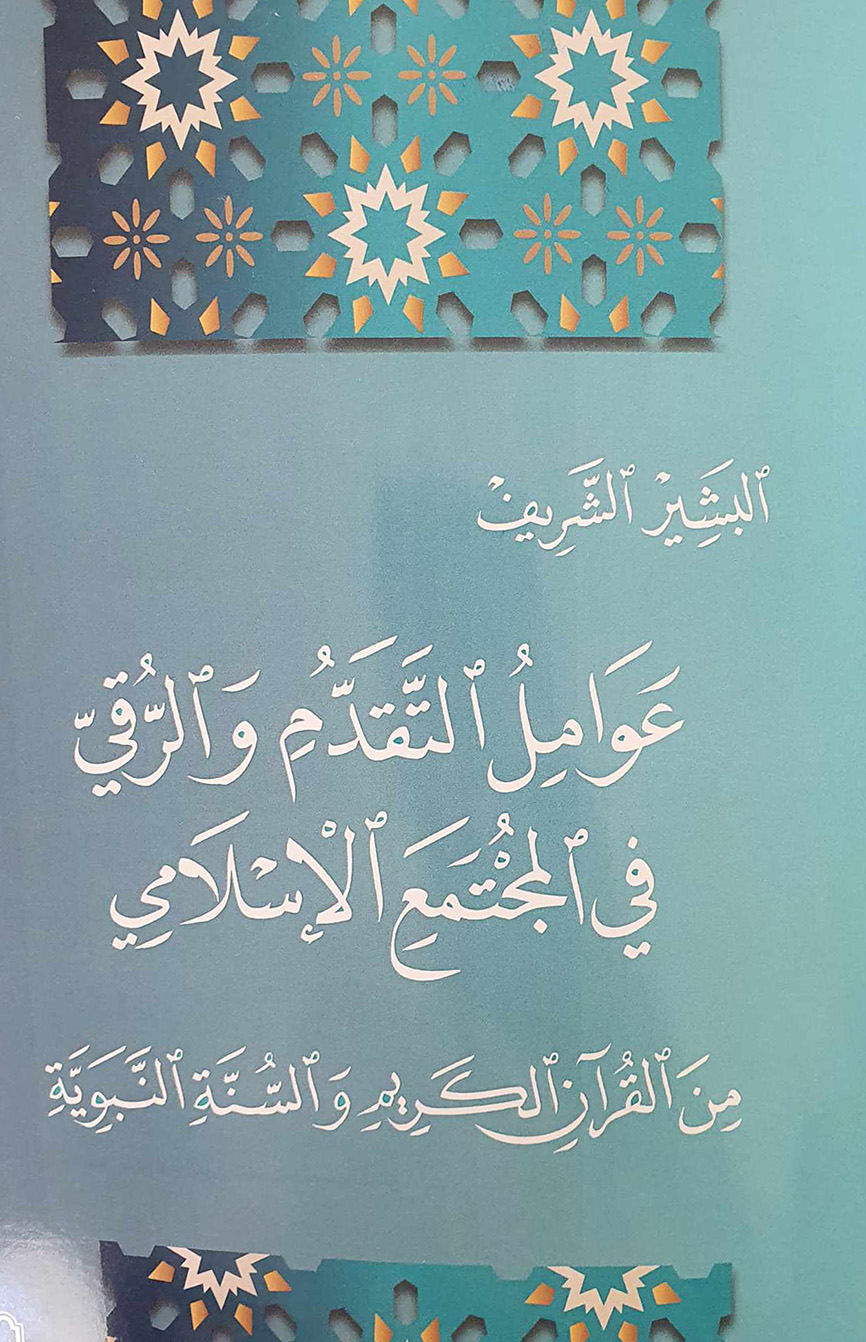 ٱلبَشِيرْ ٱلشَّرِيفْ
عَوَامِلُ ٱلتَّقَدَّمُِ وَٱلرُّقيّ
في ٱلمُجْتَمَعَِ ٱلْإِسْلَامِي
مِنَ ٱلقُرآنِ ٱلكَرِيمِ وَٱلسُّنَّةِ ٱلنَّبَوِيَّةِ